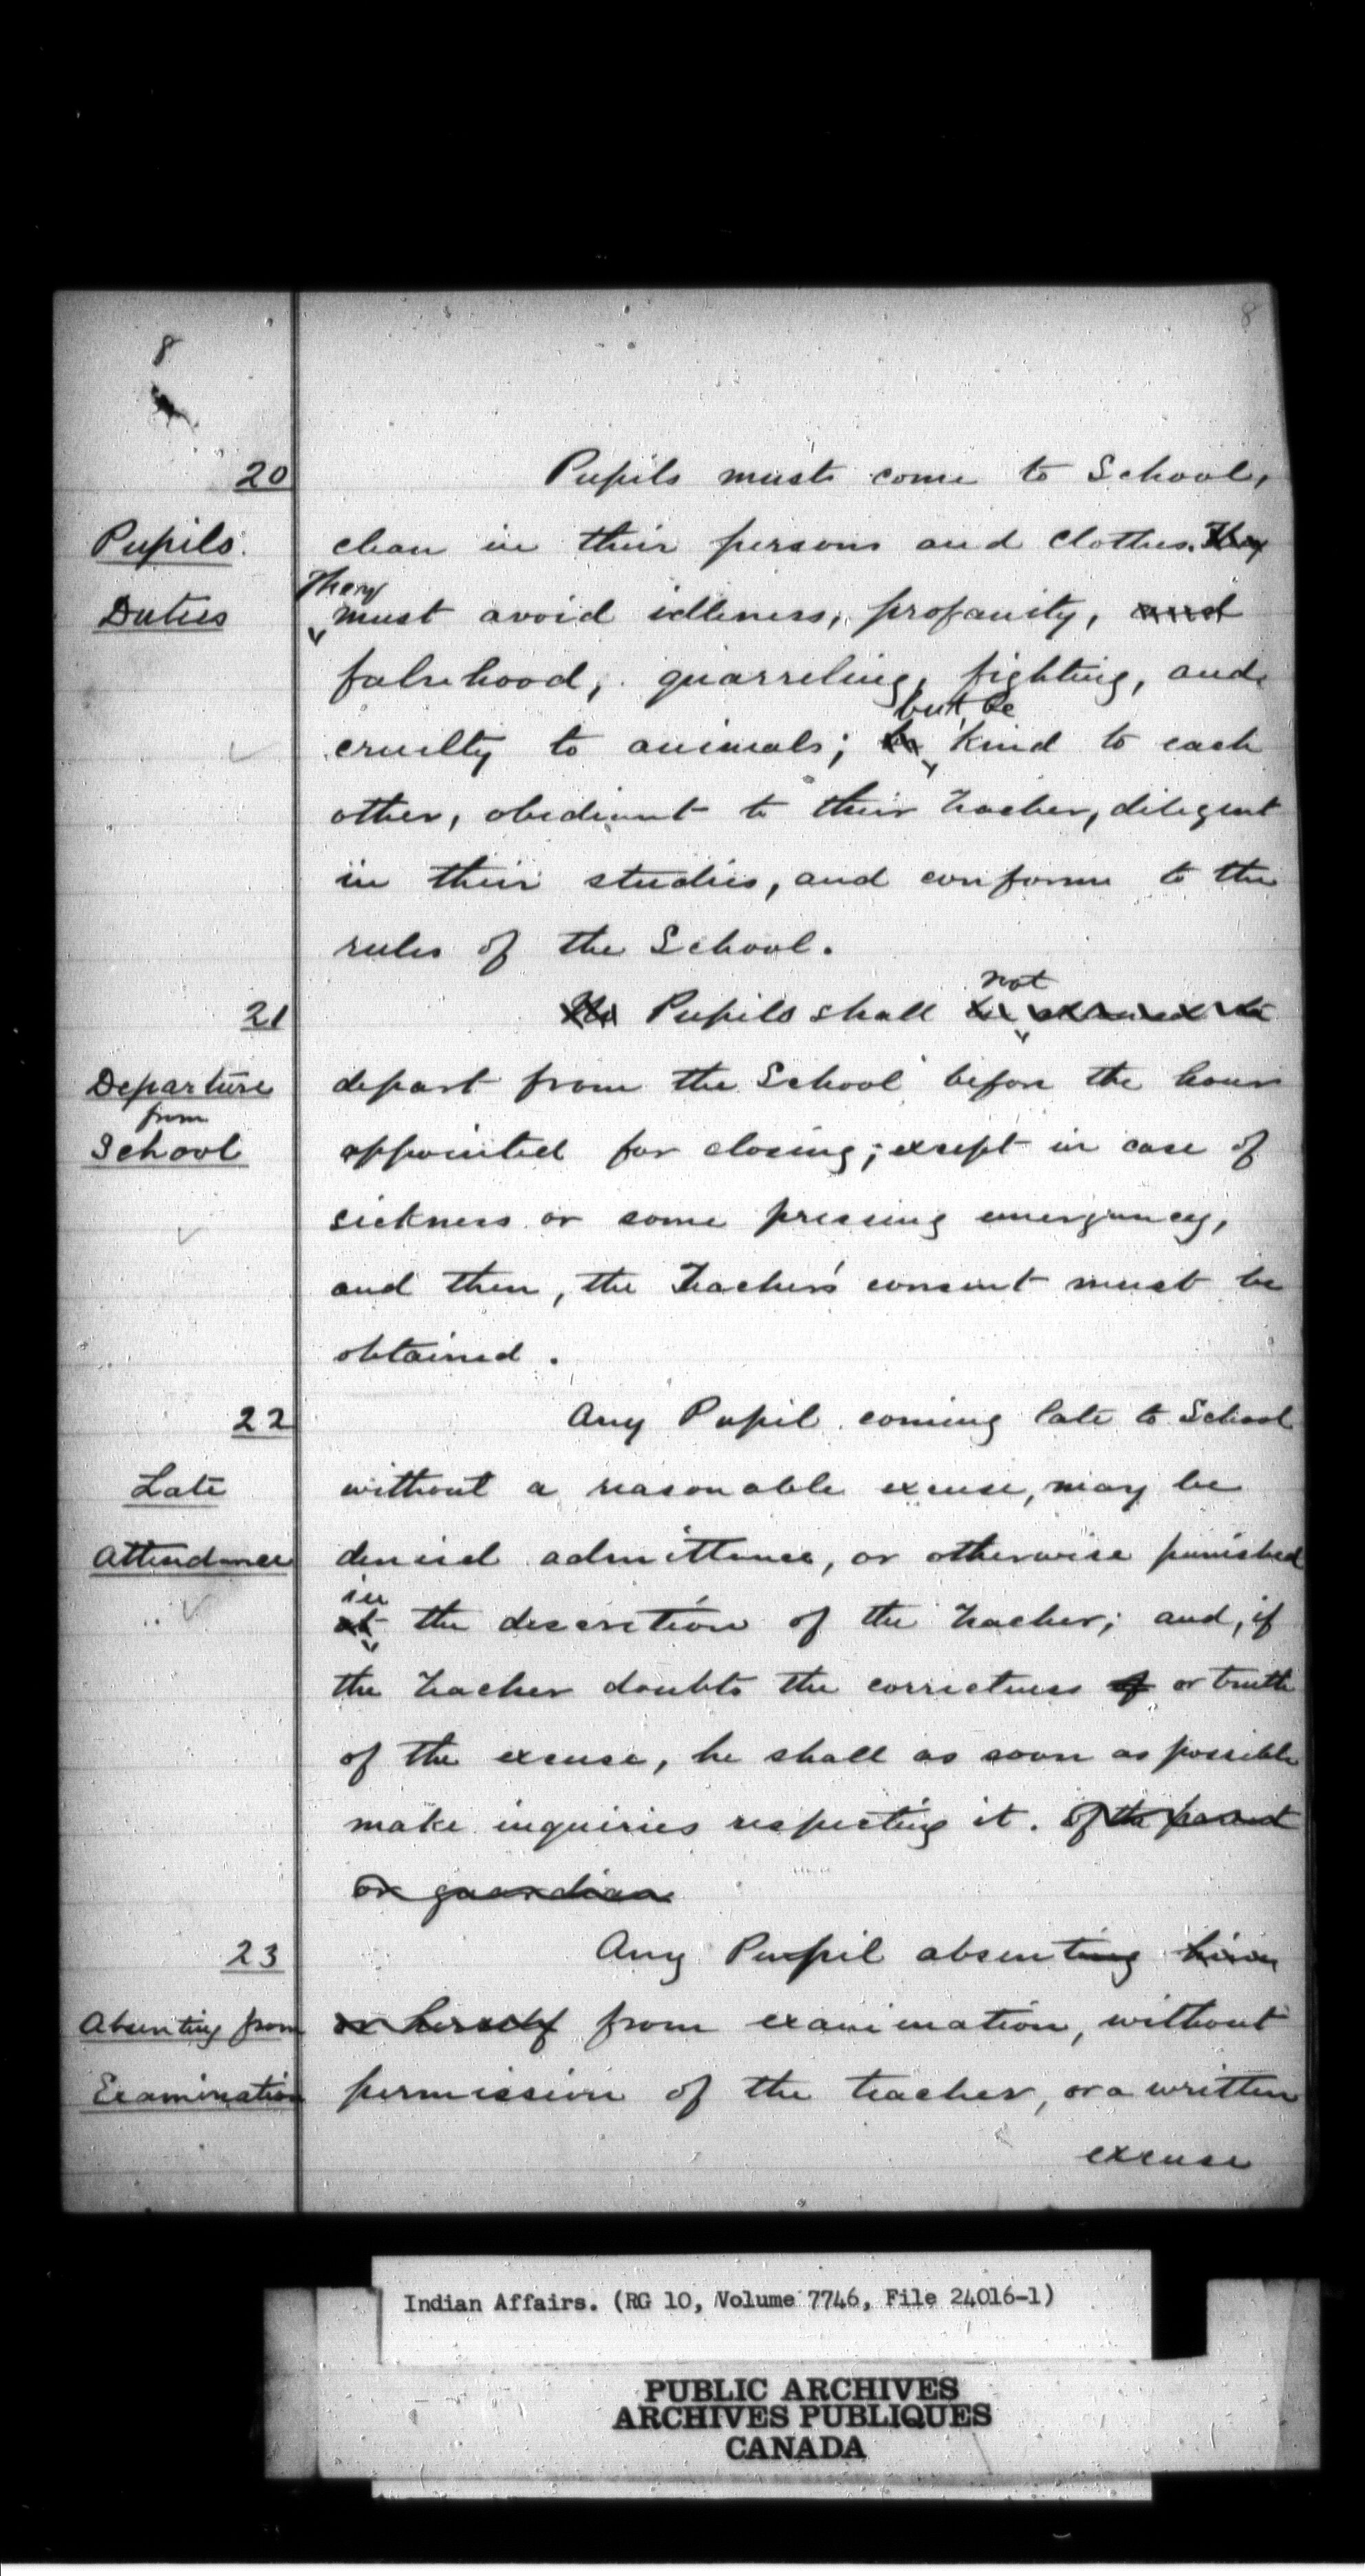 8
8
20
Pupils must come to School,
Pupils
clean in their persons and clothes. They
They
Duties
must avoid idleness, profanity, and
falsehood, quarreling, fighting, and
but be
cruelty to animals; be kind to each
other, obedient to their teacher, diligent
in their studies, and conform to the
rules of the School.
not
21
The Pupils shall be allowed to
Departure
depart from the School before the hour
from
School
appointed for closing; except in case of
sickness or some pressing emergency,
and then, the Teacher's consent must be
obtained.
22
Any Pupil coming late to School
Late
without a reasonable excuse, may be
Attendance
denied admittance, or otherwise punished
in
at the discretion of the teacher; and, if
the teacher doubts the correctness of or truth
of the excuse, he shall as soon as possible
make inquiries respecting it. of the parent
or guardian
23
Any Pupil absenting him
Absenting from
or herself from examination, without
Examination
permission of the teacher, or a written
excuse
Indian Affairs. (RG 10, Volume 7746, File 24016-1)
PUBLIC ARCHIVES
ARCHIVES PUBLIQUES
CANADA